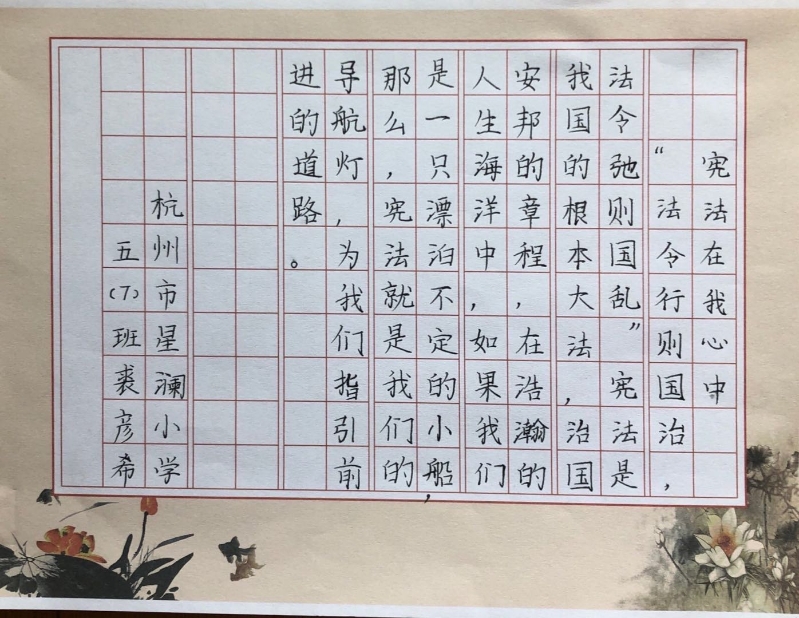 宪法在我心中
“法令行则国治，
法令弛则国乱”宪法是
我国的根本大法，治国
安邦的章程，在浩瀚的
人生海洋中，如果我们
是一只漂泊不定的小船，
那么，宪法就是我们的
导航灯，为我们指引前
进的道路。
杭州市星澜小学
五(7)班裘彦希